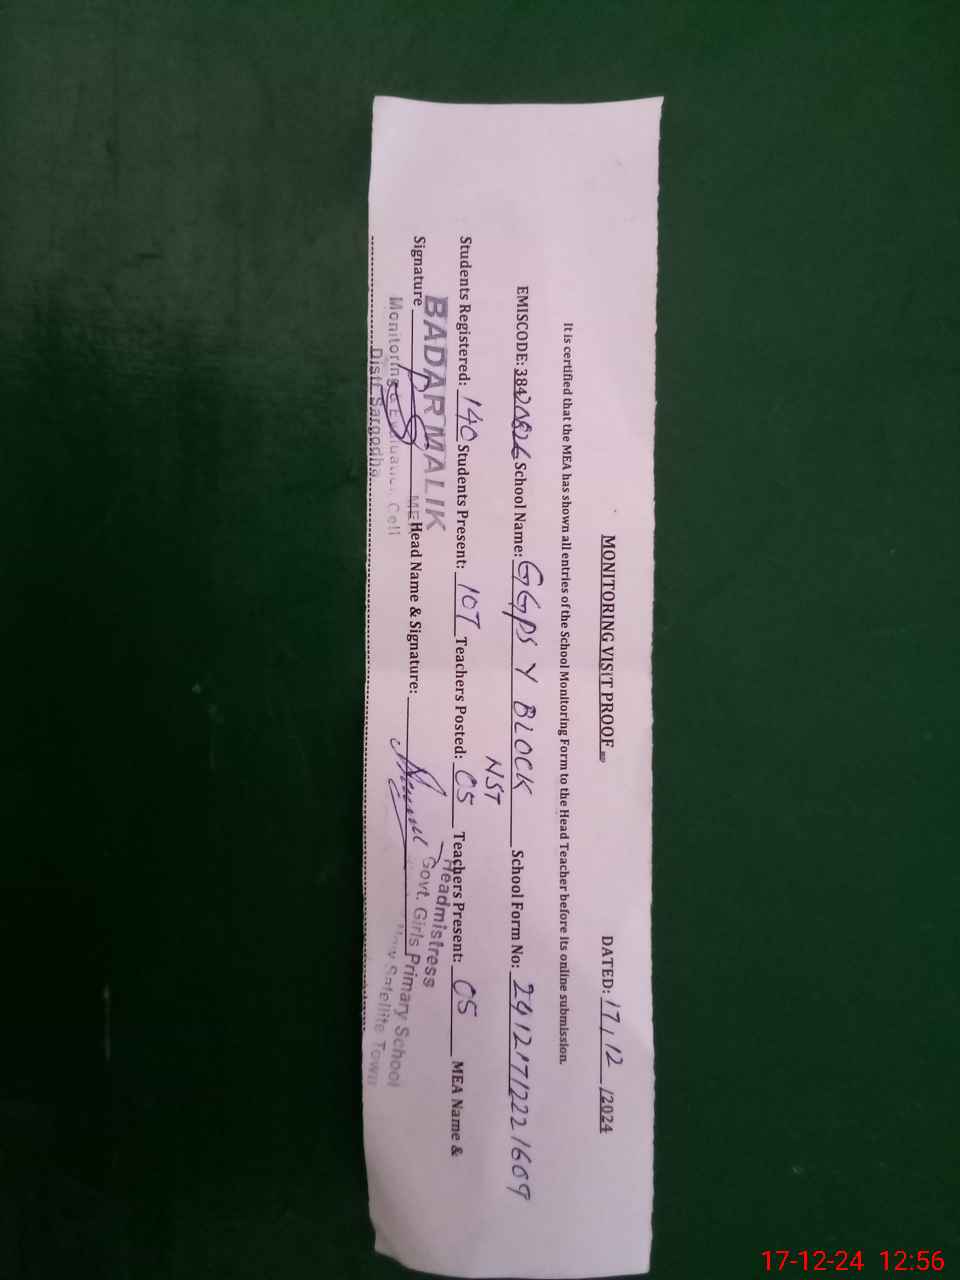 MONITORING VISIT PROOF
DATED: 17,12 /2024
It is certified that the MEA has shown all entries of the School Monitoring Form to the Head Teacher before its online submission.
EMISCODE: 384 School Name: GGPS Y BLOCK School Form No:
NST
Students Registered: 140 Students Present: 107 Teachers Posted: 05 Teachers Present: 05 MEA Name &
Signature Head Name & Signature:
BADAR MALIK
MEA
Monitoring & Evaluation Cell
Distt. Sargodha
Headmistress
Govt. Girls Primary School
New Satellite Town
17-12-24 12:56